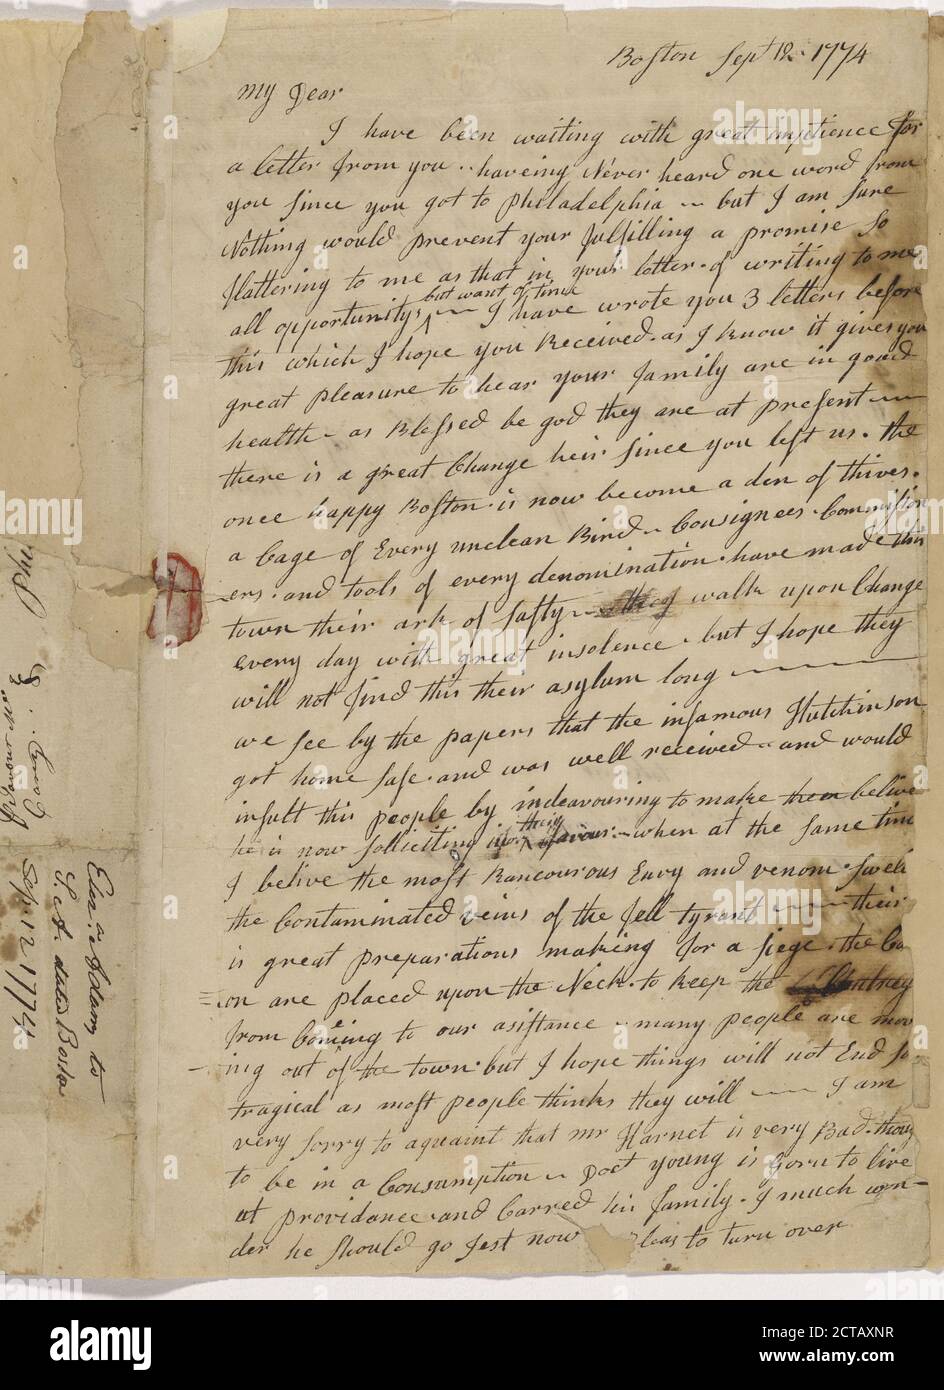 Boston Sepᵗ 12 1774
My Dear
I have been waiting with great imptience for
a letter from you .. haveing Never heard one word from
you since you got to Philadelphia ~ but I am sure
Nothing would prevent your fulfilling a promise so
flattering to me as that in your letter of writing to me
all opportunitys but want of time ~ I have wrote you 3 letters before
this which I hope you Received. as I know it gives you
great pleasure to hear your family are in good
health ~ as Blessed be god they are at present ~
there is a great Change heir since you left us. the
once happy Boston is now become a den of thives.
a Cage of Every unclean Bird ~ Consignees Commission
ers. and tools of every denomination have made this
town their ark of safty ~ they walk upon Change
every day with great insolence. but I hope they
will not find this their asylum long ~
we see by the papers that the infamous Hutchinson
got home safe. and was well received ~ and would
insult this people by indeavouring to make them belive
he is now sollicitting in their favour. ~ when at the same time
I belive the most Rancourous Envy and venom swell
the Contaminated veins of the fell tyrant ~ their
is great preparations making for a siege. the Ca
on are placed upon the Neck. to keep the
from Coming to our asistance ~ many people are mov
ing out of the town. but I hope things will not End so
tragical as most people thinks they will ~ I am
very sorry to aquaint that mr Harnet is very Bad. thou
to be in a Consumption ~ Doct young is gorn to live
at providance and Carred his family. I much won-
der he should go Jest now to turn over
Eliz. a Adams to
S. A. dated Boston
Sep. 12 1774
alamy
alamy
Image ID: 2CTAXNR
www.alamy.com